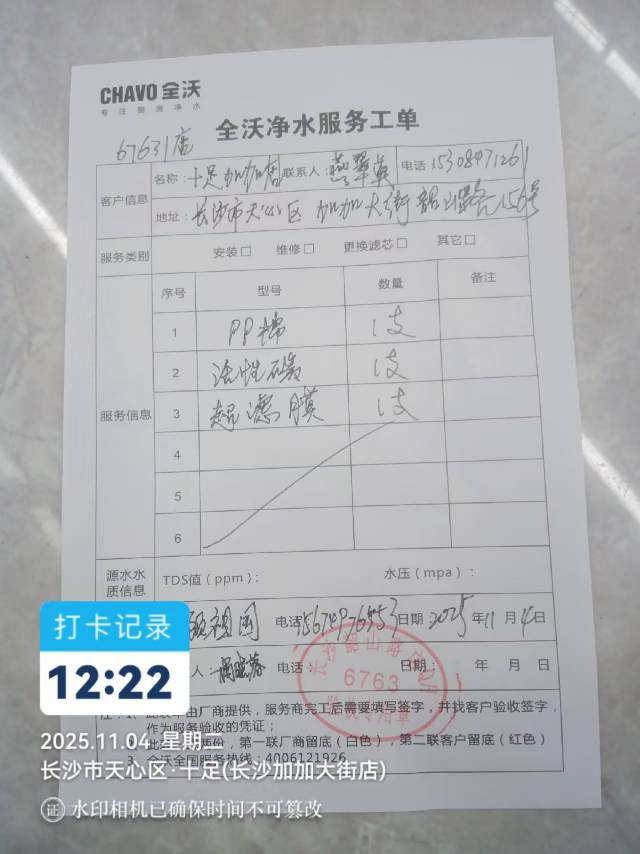 CHAVO 全沃
专注厨房净水
67631店
全沃净水服务工单
客户信息
名称：十足加加店 联系人： 电话 15308471261
地址：长沙市天心区 加加大街韶山路 156号
服务类别 安装□ 维修□ 更换滤芯□ 其它□
服务信息
序号 型号 数量 备注
1 PP棉 1支
2 活性碳 1支
3 超滤膜 1支
4
5
6
源水水质信息 TDS值（ppm）： 水压（mpa）：
祖国 电话 日期：2025年11月4日
人： 电话： 日期： 年 月 日
长沙韶山路 6763 验收专用章
注：1、此表单由厂商提供，服务商完工后需要填写签字，并找客户验收签字，
作为服务验收的凭证；
2、 两份，第一联厂商留底（白色），第二联客户留底（红色）
3、全沃全国服务热线：4006121926
打卡记录
12:22
2025.11.04 星期二
长沙市天心区·十足(长沙加加大街店)
证 水印相机已确保时间不可篡改